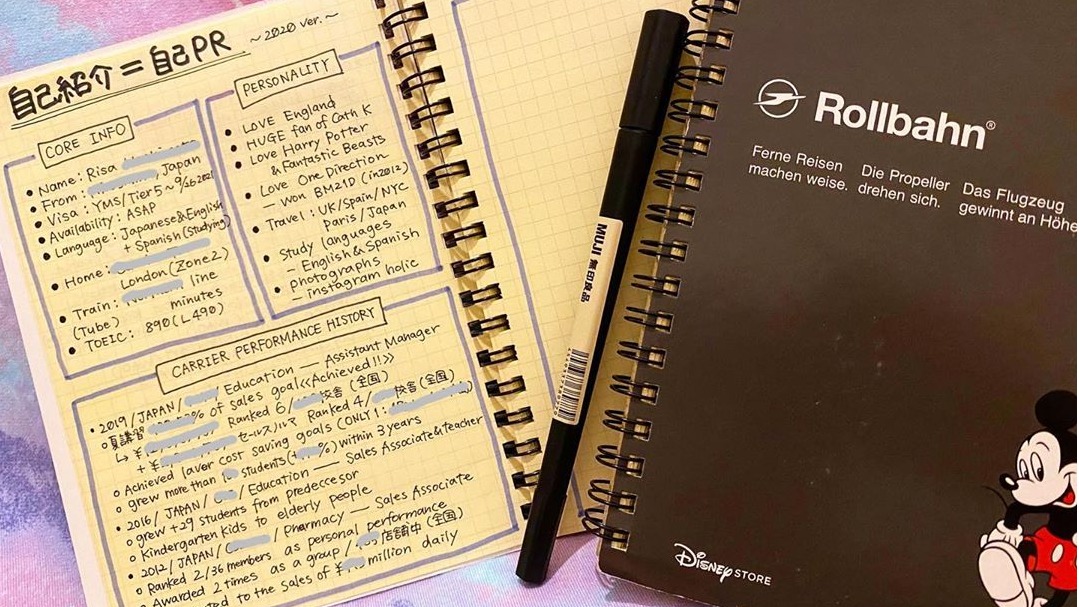 自己紹介=自己PR ~2020 ver.~
CORE INFO
• Name: Risa
• From: Japan
• Visa: YMS/Tier5~9/
• Availability: ASAP
• Language: Japanese&English
+ Spanish (Studying)
• Home:
London (Zone2)
• Train: line
(Tube) minutes
• TOEIC: 890 (L490)
PERSONALITY
• LOVE England
• HUGE fan of Cath K
• Love Harry Potter
& Fantastic Beasts
• Love One Direction
— won BM21D (in2012)
• Travel: UK/Spain/NYC
Paris/Japan
• Study languages
— English & Spanish
• photographs
— instagram holic
CARRIER PERFORMANCE HISTORY
• 2019/JAPAN/ Education — Assistant Manager
% of sales goal <<Achieved!!>>
夏講習 Ranked 6/ 校舎(全国)
↳ ¥ セールスノルマ Ranked 4/ 校舎(全国)
+ ¥
○ Achieved lavor cost saving goals (ONLY 1:
○ grew more than students (+ %) within 3 years
• 2016/JAPAN/ /Education — Sales Associate&teacher
○ grew +29 students from predeccesor
○ Kindergarten kids to elderly people
• 2012/JAPAN/ /Pharmacy — Sales Associate
○ Ranked 2/36 members as personal performance
○ Awarded 2 times as a group / 店舗中(全国)
ted to the sales of ¥ million daily
MUJI 無印良品
Rollbahn®
Ferne Reisen
machen weise.
Die Propeller
drehen sich.
Das Flugzeug
gewinnt an Höhe
Disney STORE